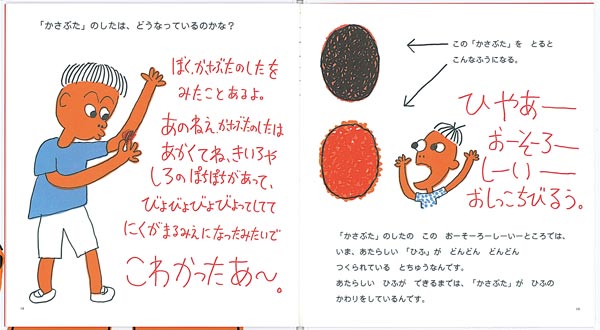 「かさぶた」のしたは、どうなっているのかな？
ぼく、かさぶたのしたを
みたことあるよ。
あのねえ かさぶたのしたは
あかくてね、きいろや
しろの ぽちぽちがあって、
びょびょびょびょってしてて
にくがまるみえになったみたいで
こわかったあ〜。
この「かさぶた」を とると
こんなふうになる。
ひやあー
おーそろー
しーいー
おしっこちびるう。
「かさぶた」のしたの この おーそーろーしーいーところでは、
いま、あたらしい「ひふ」が どんどん どんどん
つくられている とちゅうなんです。
あたらしい ひふが できるまでは、「かさぶた」が ひふの
かわりをしているんです。